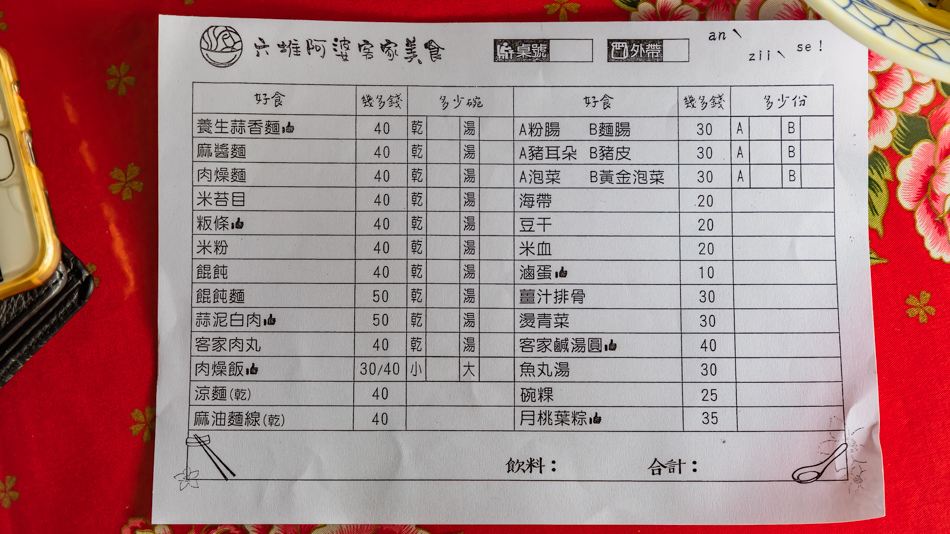 六堆阿婆客家美食 桌號 外帶 anˋ ziiˋ se！
好食 幾多錢 多少碗 好食 幾多錢 多少份
養生蒜香麵 40 乾 湯 A粉腸 B麵腸 30 A B
麻醬麵 40 乾 湯 A豬耳朵 B豬皮 30 A B
肉燥麵 40 乾 湯 A泡菜 B黃金泡菜 30 A B
米苔目 40 乾 湯 海帶 20
粄條 40 乾 湯 豆干 20
米粉 40 乾 湯 米血 20
餛飩 40 乾 湯 滷蛋 10
餛飩麵 50 乾 湯 薑汁排骨 30
蒜泥白肉 50 乾 湯 燙青菜 30
客家肉丸 40 乾 湯 客家鹹湯圓 40
肉燥飯 30/40 小 大 魚丸湯 30
涼麵(乾) 40 碗粿 25
麻油麵線(乾) 40 月桃葉粽 35
飲料： 合計：